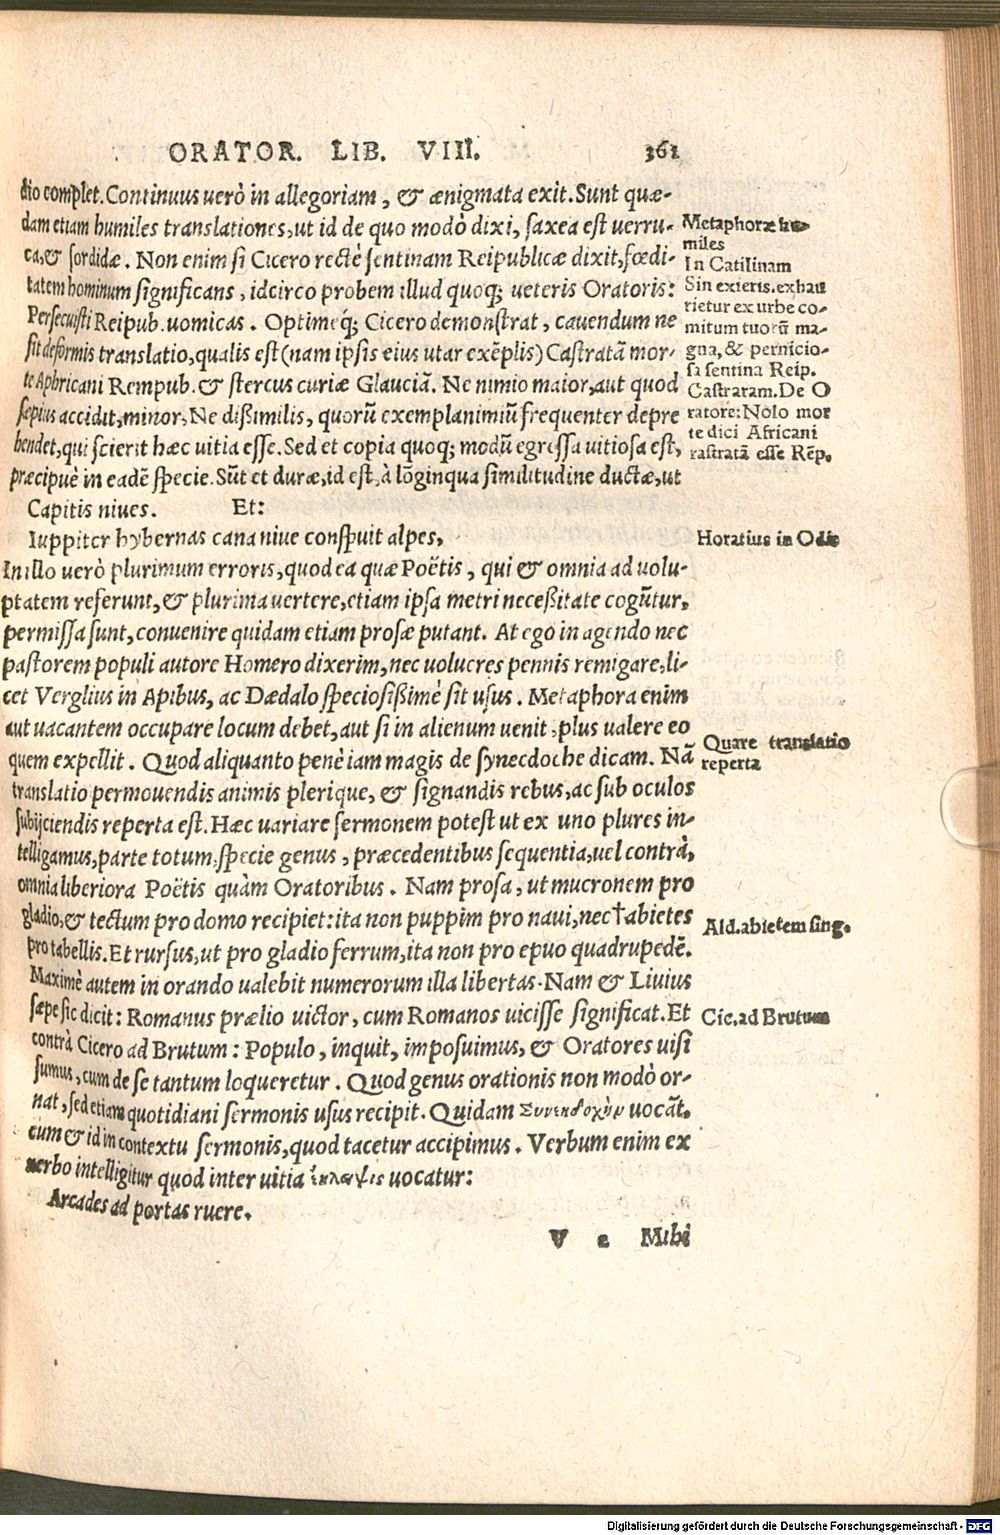 ORATOR. LIB. VIII. 361
dio complet. Continuus uerò in allegoriam, & ænigmata exit. Sunt quæ-
dam etiam humiles translationes, ut id de quo modò dixi, saxea est uerru-
ca, & sordidæ. Non enim si Cicero rectè sentinam Reipublicæ dixit, fœdi-
tatem hominum significans, idcirco probem illud quoq; ueteris Oratoris:
Persecuisti Reipub. uomicas. Optimeq́; Cicero demonstrat, cauendum ne
sit deformis translatio, qualis est (nam ipsis eius utar exẽplis) Castratã mor-
te Aphricani Rempub. & stercus curiæ Glauciã. Ne nimio maior, aut quod
sæpius accidit, minor, Ne dißimilis, quorũ exempla nimiũ frequenter depre
hendet, qui scierit hæc uitia esse. Sed et copia quoq; modũ egressa uitiosa est,
præcipuè in eadẽ specie. Sũt et duræ, id est, à lõginqua similitudine ductæ, ut
Capitis niues. Et:
Iuppiter hybernas cana niue conspuit alpes,
In illo uerò plurimum erroris, quod ea quæ Poëtis, qui & omnia ad uolu-
ptatem referunt, & plurima uertere, etiam ipsa metri neceßitate cogũtur,
permissa sunt, conuenire quidam etiam prosæ putant. At ego in agendo nec
pastorem populi autore Homero dixerim, nec uolucres pennis remigare, li-
cet Verglius in Apibus, ac Dædalo speciosißimè sit usus. Metaphora enim
aut uacantem occupare locum debet, aut si in alienum uenit, plus ualere eo
quem expellit. Quod aliquanto penè iam magis de synecdoche dicam. Nã
translatio permouendis animis plerique, & signandis rebus, ac sub oculos
subijciendis reperta est. Hæc uariare sermonem potest ut ex uno plures in-
telligamus, parte totum, specie genus, præcedentibus sequentia, uel contrà,
omnia liberiora Poëtis quàm Oratoribus. Nam prosa, ut mucronem pro
gladio, & tectum pro domo recipiet: ita non puppim pro naui, nec †abietes
pro tabellis. Et rursus, ut pro gladio ferrum, ita non pro epuo quadrupedẽ.
Maximè autem in orando ualebit numerorum illa libertas. Nam & Liuius
sæpe sic dicit: Romanus prælio uictor, cum Romanos uicisse significat. Et
contrà Cicero ad Brutum: Populo, inquit, imposuimus, & Oratores uisi
sumus, cum de se tantum loqueretur. Quod genus orationis non modò or-
nat, sed etiam quotidiani sermonis usus recipit. Quidam Συνεκδοχὴν uocãt,
cum & id in contextu sermonis, quod tacetur accipimus. Verbum enim ex
uerbo intelligitur quod inter uitia ἔκλειψις uocatur:
Arcades ad portas ruere.
V e Mihi
Metaphoræ hu-
miles
In Catilinam
Sin exieris, exhau
rietur ex urbe co-
mitum tuorũ ma-
gna, & pernicio-
sa sentina Reip.
Castraram. De O
ratore: Nolo mor
te dici Africani
rastratã esse Rẽp.
Horatius in Odis
Quare translatio
reperta
Ald. abietem sing.
Cic. ad Brutum
Digitalisierung gefördert durch die Deutsche Forschungsgemeinschaft - DFG